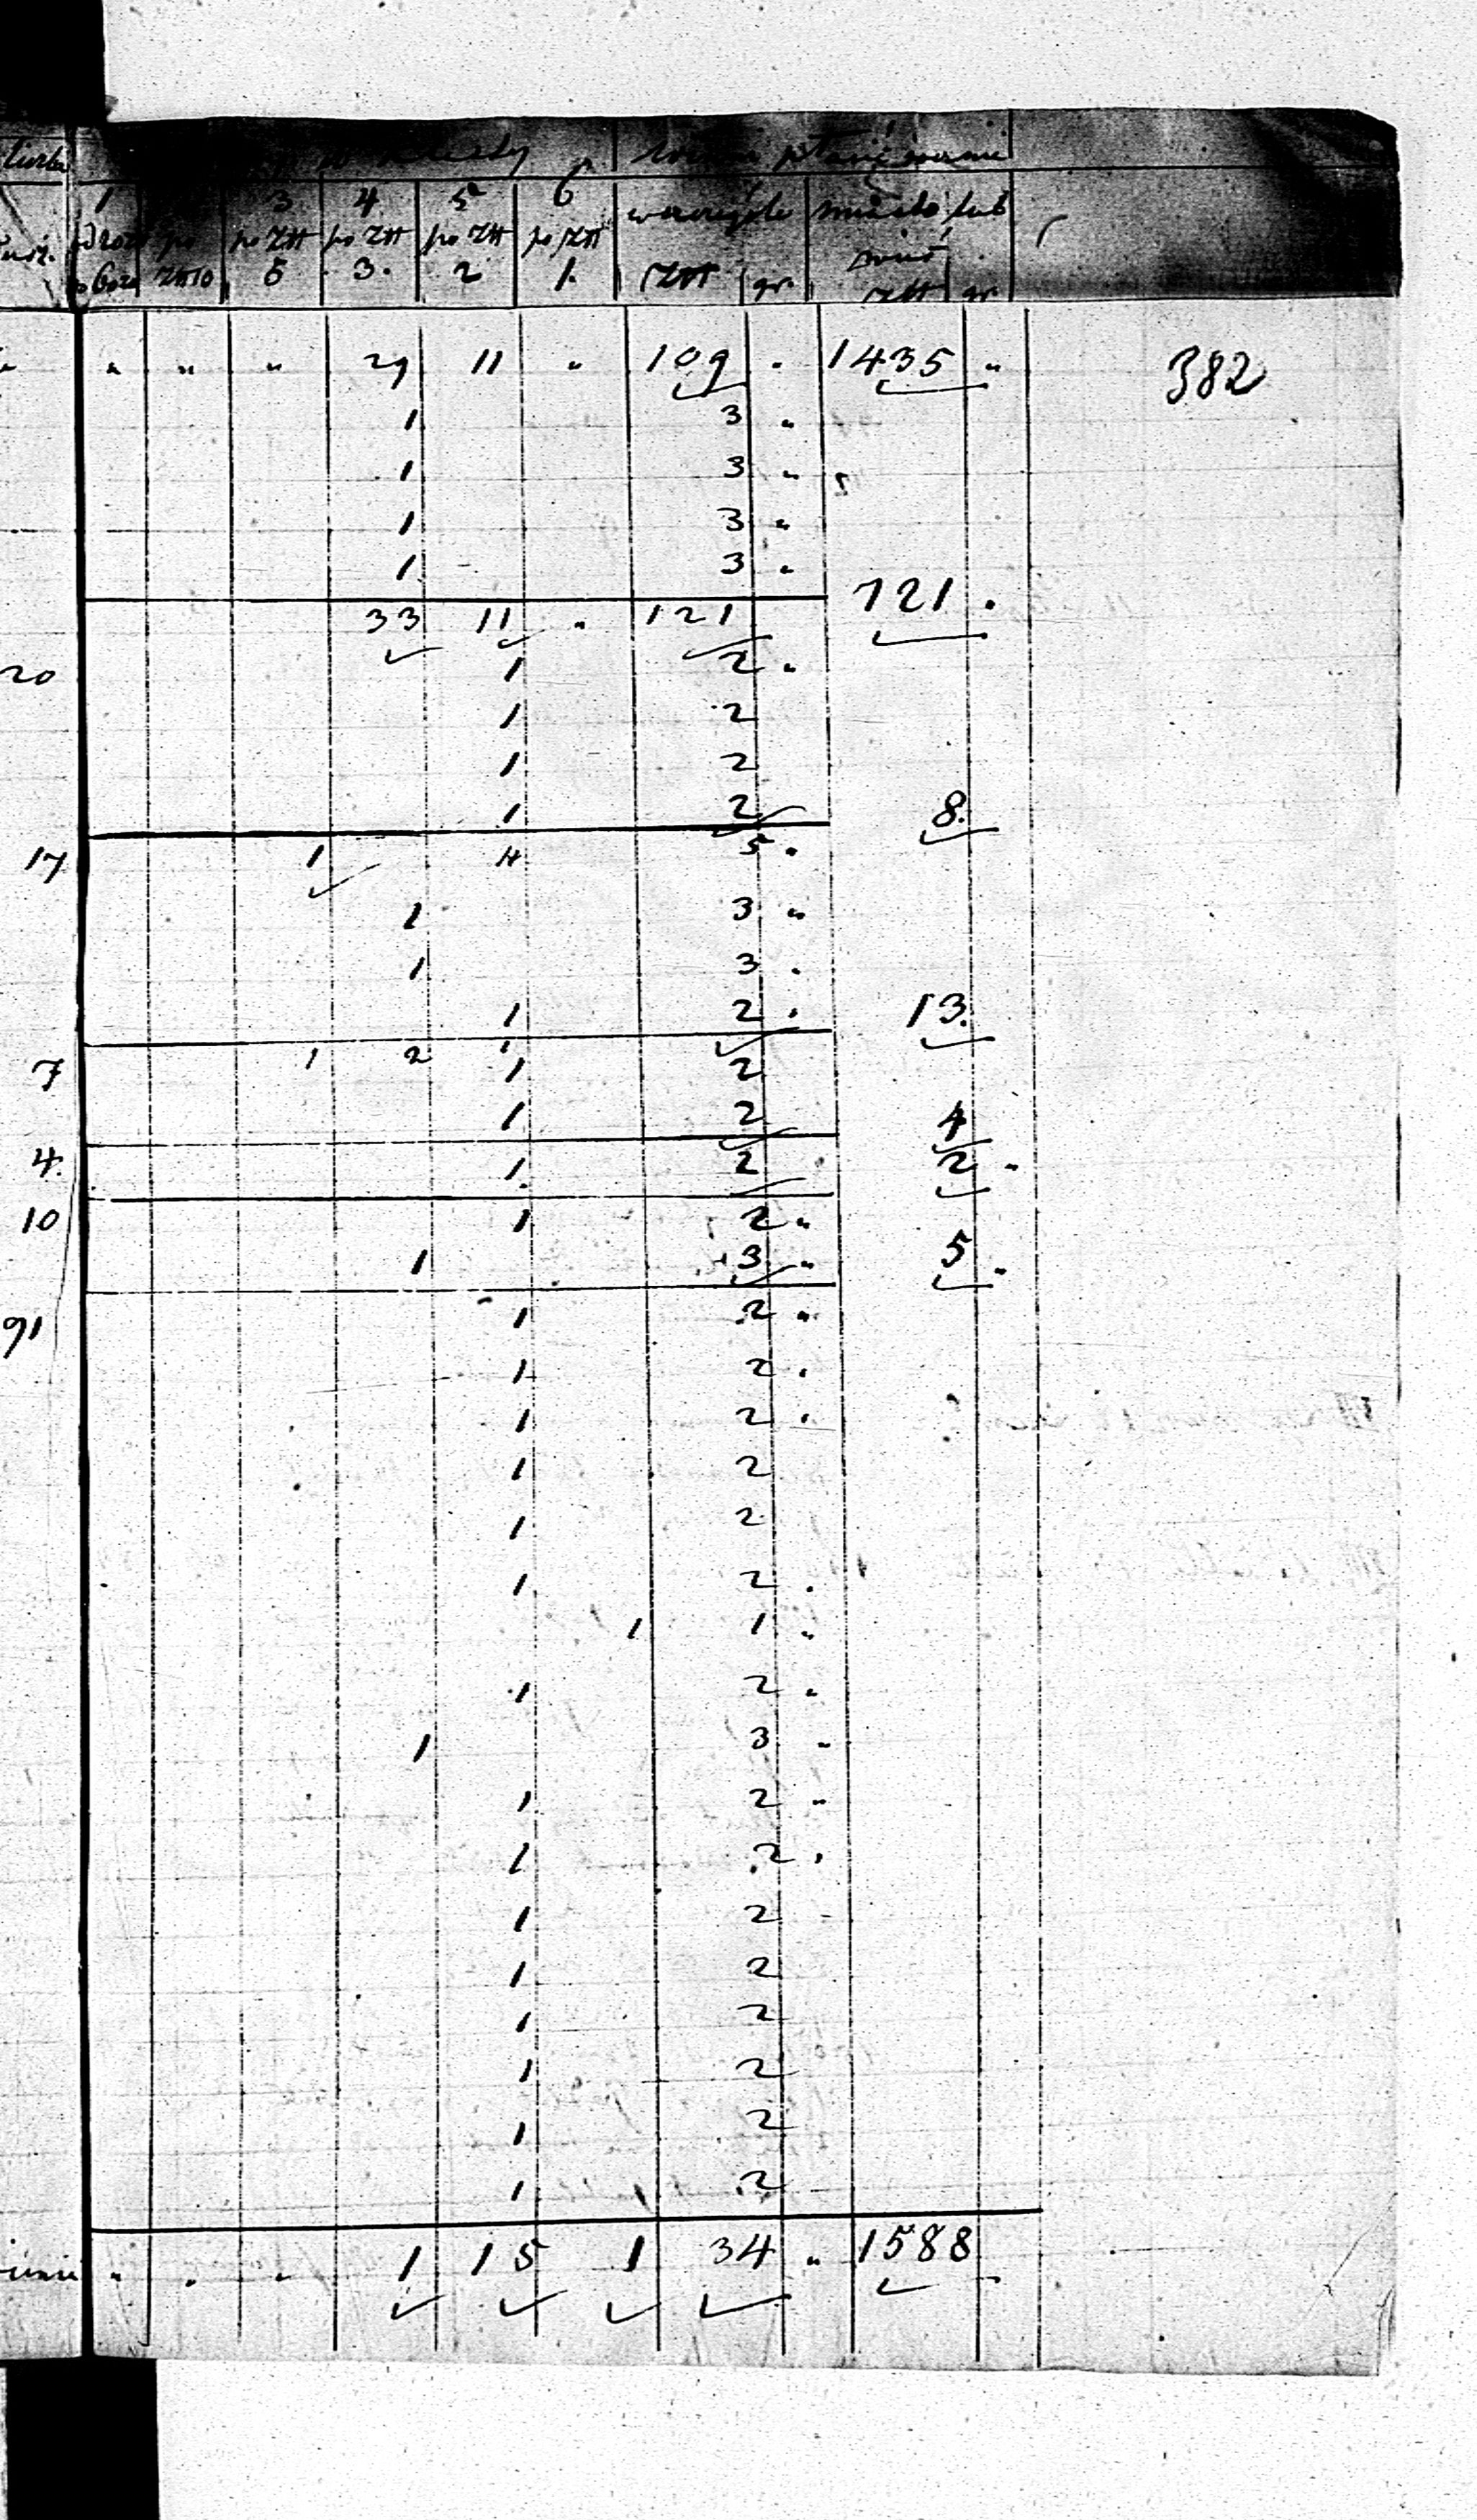 1 3 4 5 6
po Złł po Złł po Złł po Złł szczególe miasto lub
5 3. 2 1. Złł gr. Złł gr
" " " 29 11 " 109 . 1435 "
382
1 3 "
1 3 "
1 3 "
1 3 "
33 11 " 121 121 .
20 1 2 .
1 2
1 2
1 2 8.
17 1 " 5 .
1 3 "
1 3 .
1 2 . 13.
1 2 1
7 1 2
1 2 4
4. 1. 2 2 .
10 1 2 "
1 3 " 5 .
91 1 2 "
1 2 .
1 2 .
1 2
1 2
1 2 .
1 1 "
1 2 .
1 3 "
1 2 "
1 2 .
1 2
1 2
1 2
1 2
1 2
1 2
" . " 1 15 1 34 " 1588